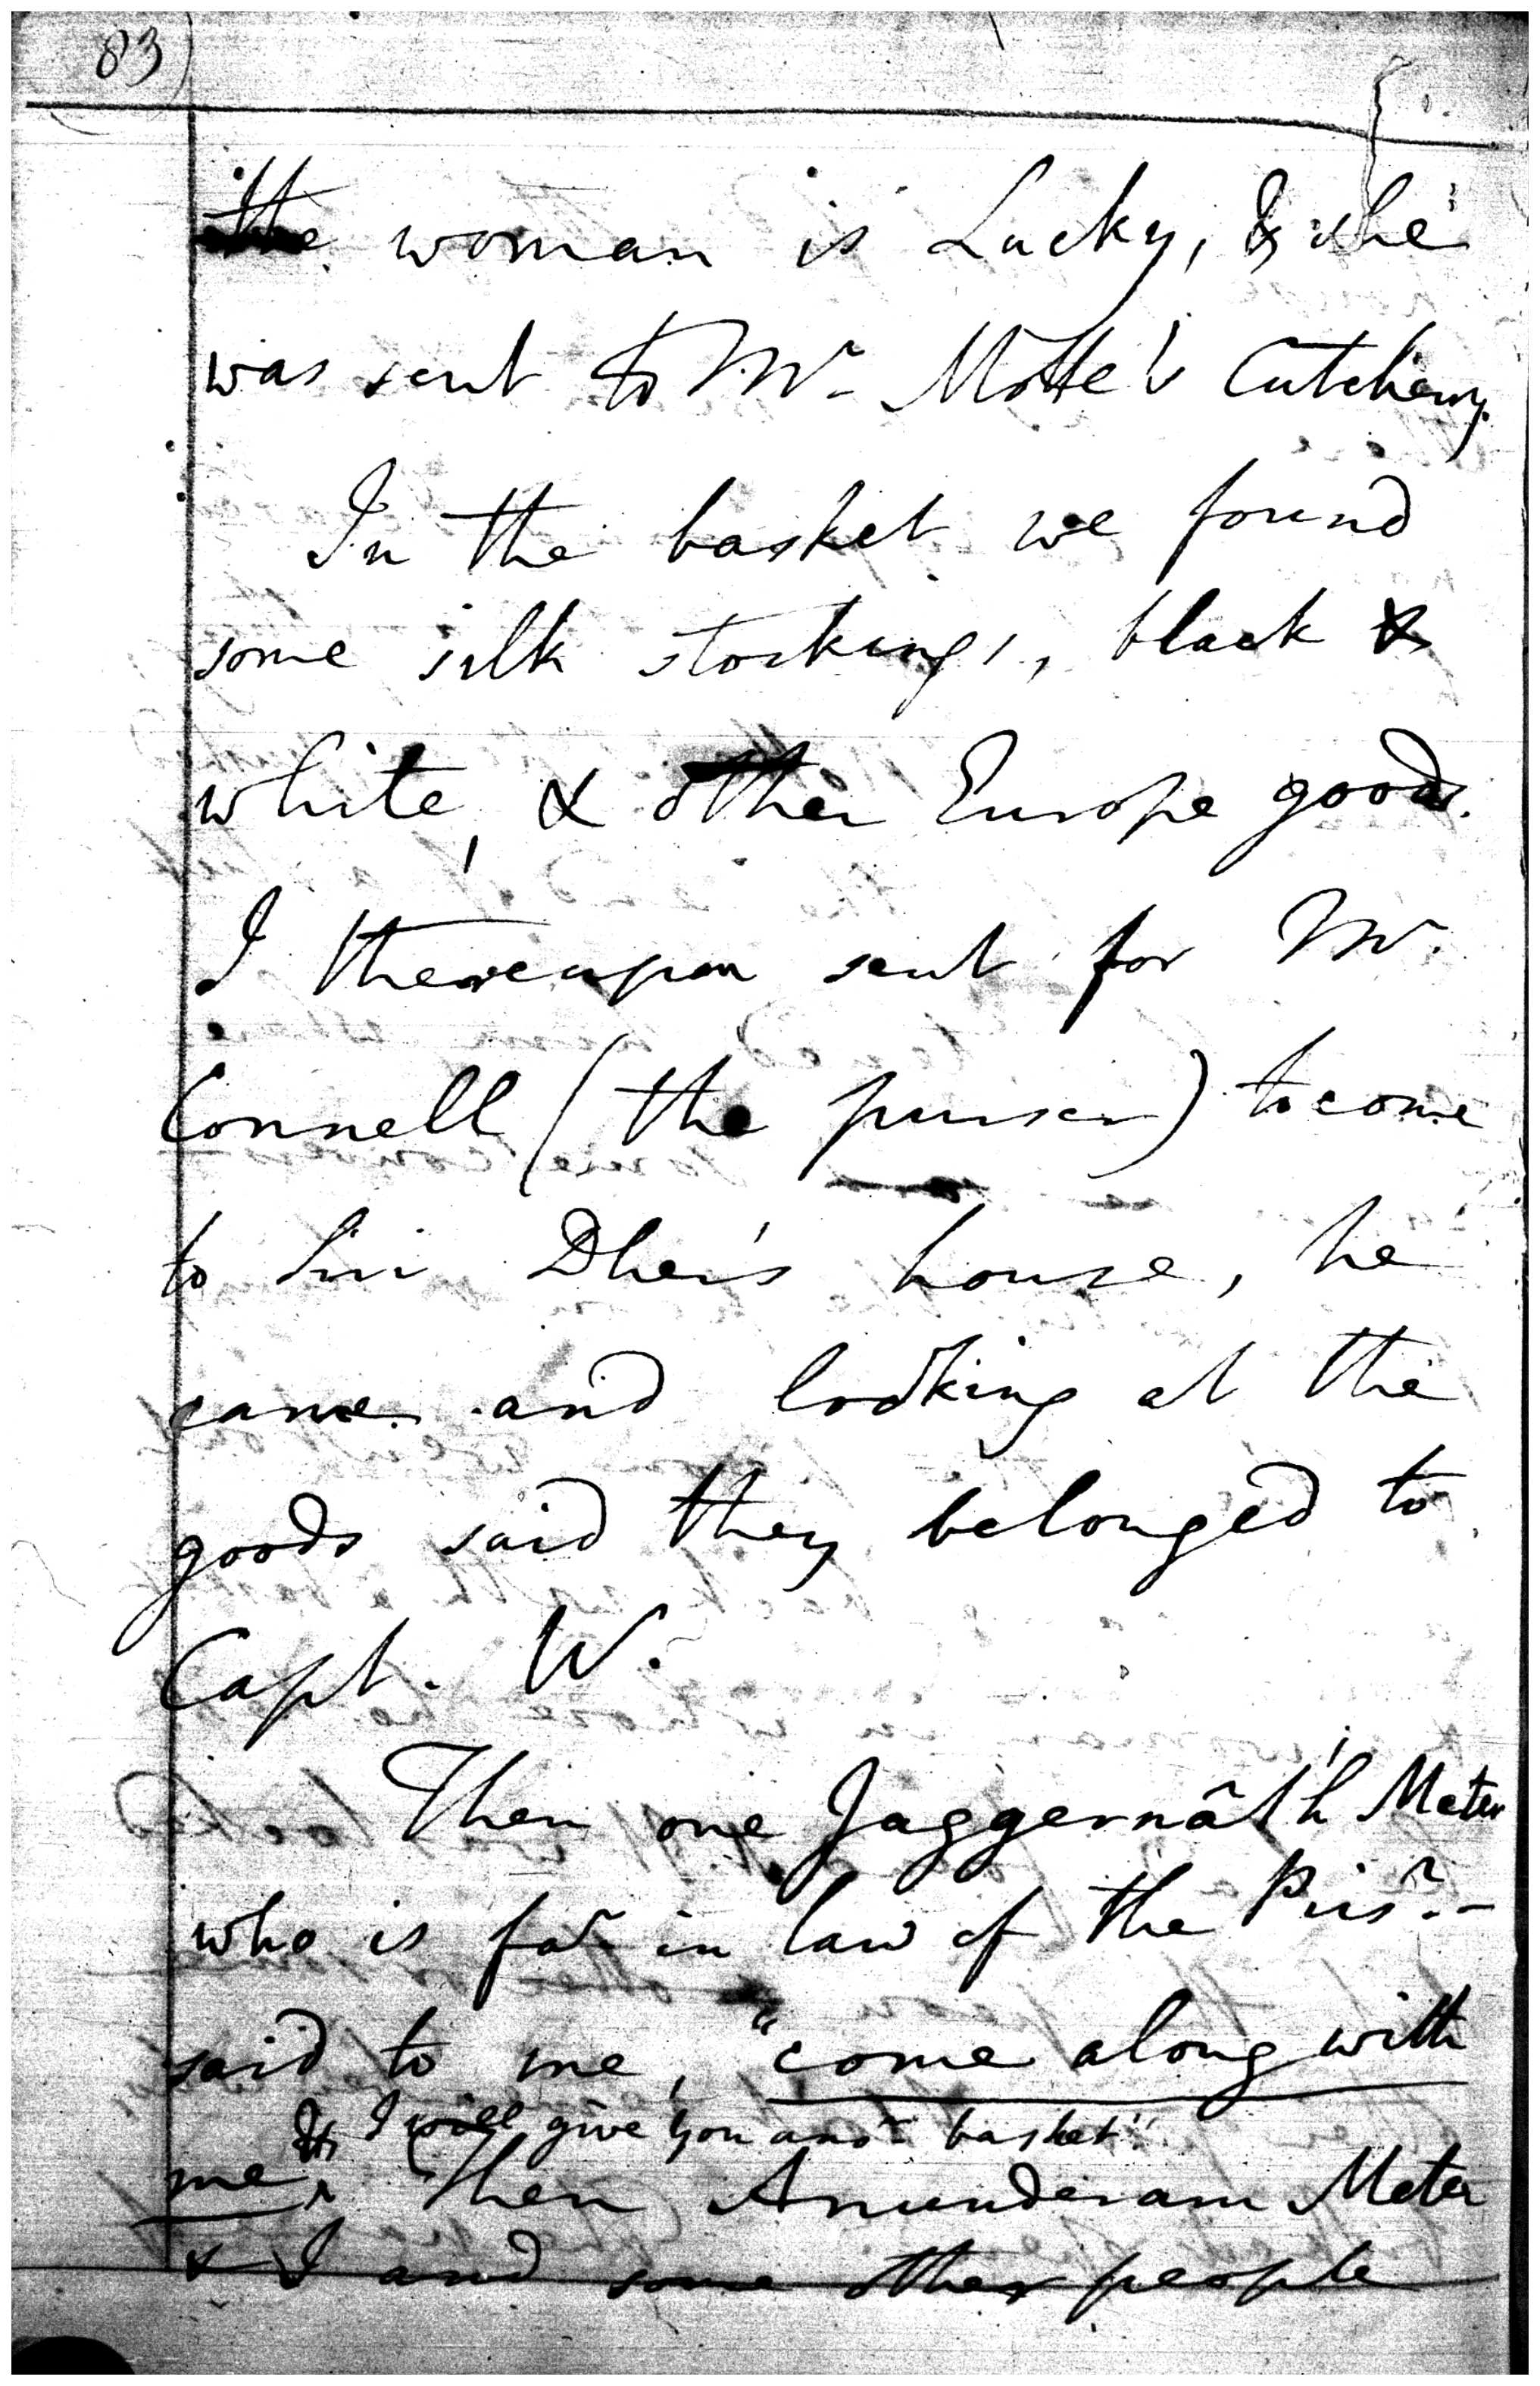 83)
the woman is Lucky, & she
was sent to Mr. Motte's Cutcherry.
In the basket we found
some silk stockings, black &
white, & other Europe goods.
I thereupon sent for Mr.
Connell (the purser) to come
to Dher's house, he
came and looking at the
goods said they belonged to
Capt. W.
Then one Jaggernâth Meter
who is far in law of the Prisr.
said to me, "come along with
& I will give you anor basket"
me, Then Anunderam Meter
& I and some other people